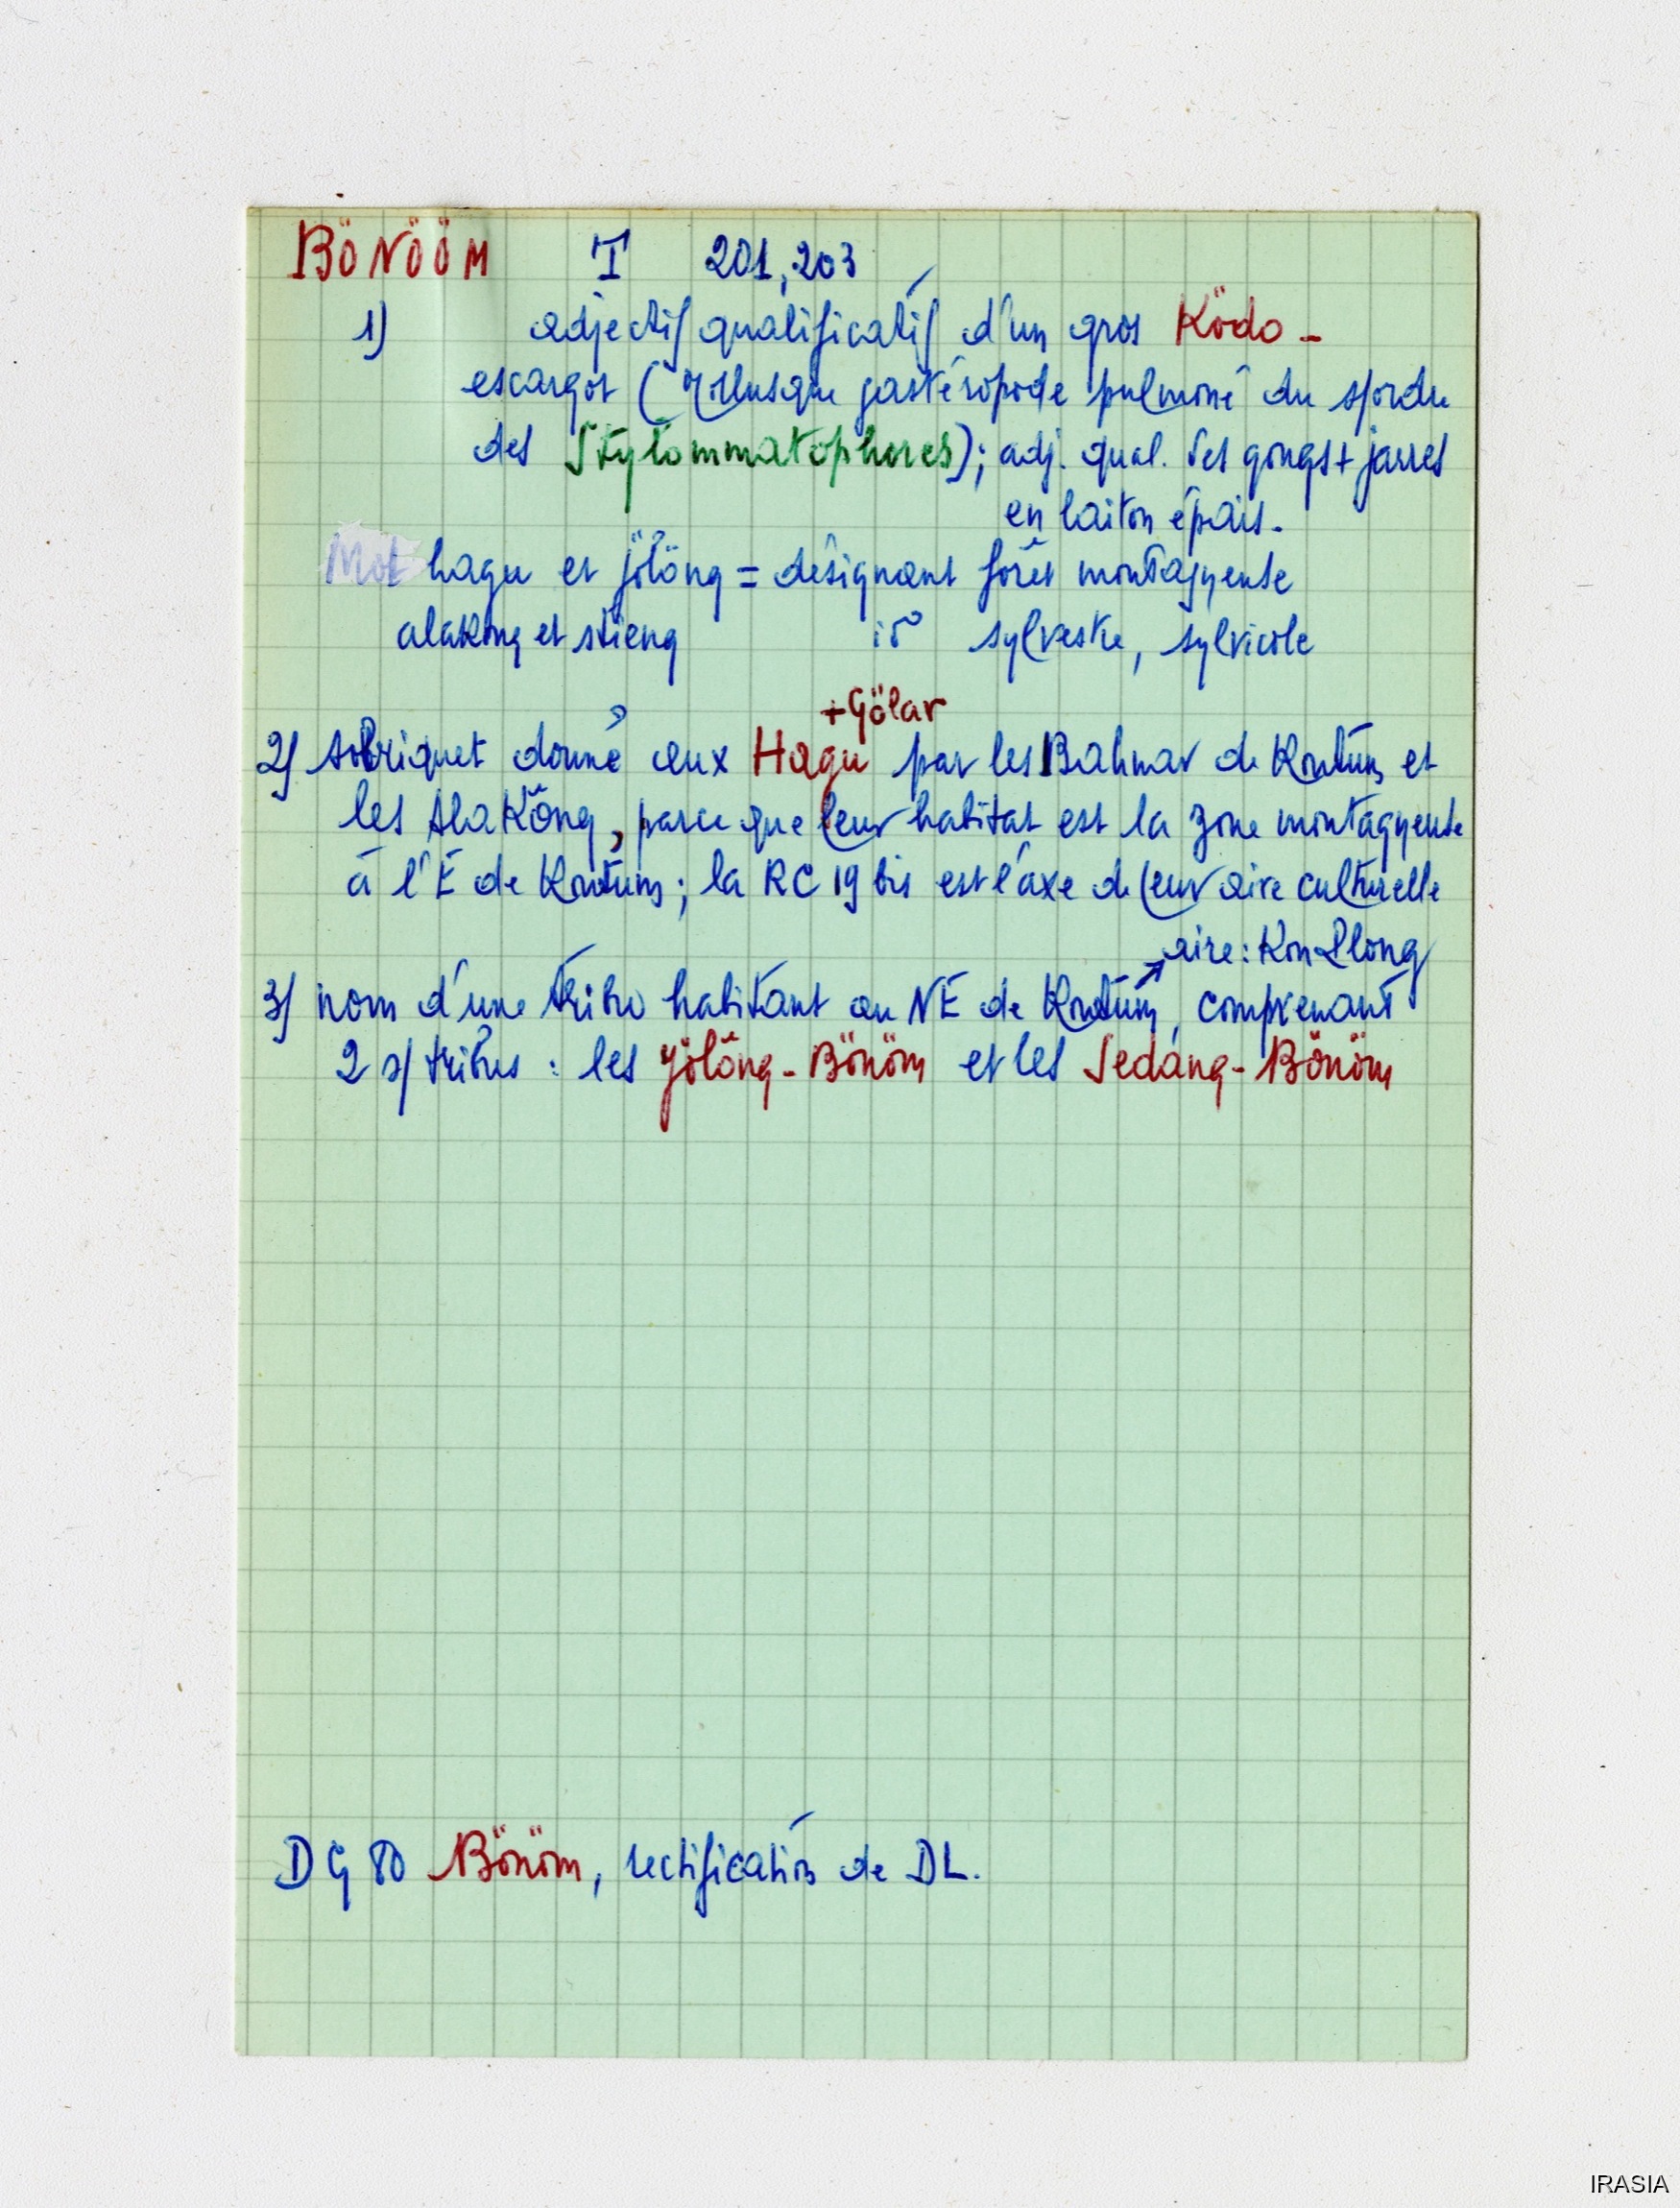 BÖNÖÖM I 201, 203
1) adjectif qualificatif d'un gros Ködo -
escargot (Mollusque gastéropode pulmoné du s/ordre
des Stylommatophores); adj. qual. des gongs + jarres
en laiton épais.
Mot hagu et jölöng = désignant forêt montagneuse
alakong et stieng id sylvestre, sylvicole
+ Gölar
2) sobriquet donné aux Hagu par les Bahnar de Kontum et
les AlaKông, parce que leur habitat est la zone montagneuse
à l'E de Kontum; la RC 19 bis est l'axe de leur aire culturelle
aire: Kon Plong
3) nom d'une tribu habitant au NE de Kontum, comprenant
2 s/tribus : les Jölöng-Bönöm et les Sedang-Bönöm
DG 80 Bönöm, rectification de DL.
IRASIA